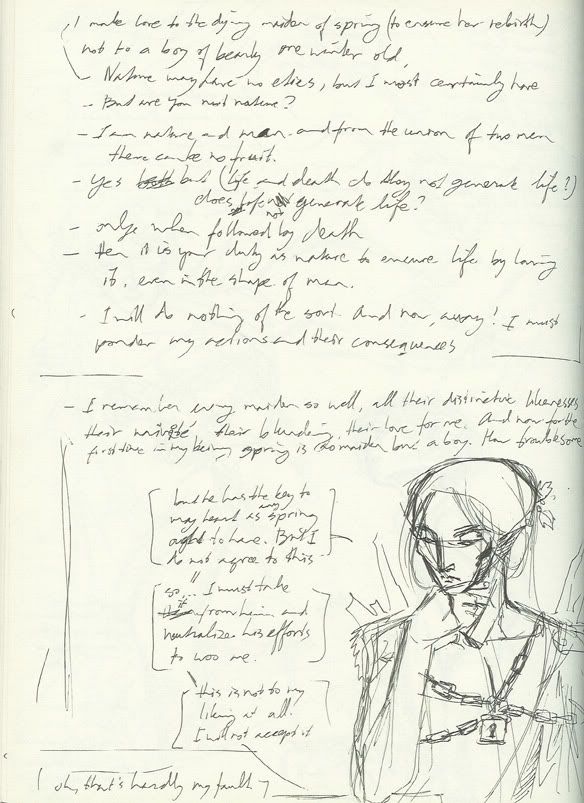 I make love to the dying maiden of spring (to ensure her rebirth)
not to a boy of bearly one winter old,
- Nature may have no ethics, but I most certainly have
- But are you not nature?
- I am nature and man. and from the union of two men
there can be no fruit.
- Yes but (life and death do they not generate life?)
does life not generate life?
- only when followed by death
- then it is your duty as nature to ensure life by loving
it, even in the shape of man.
- I will do nothing of the sort. And now, away! I must
ponder my actions and their consequences
- I remember every maiden so well, all their distinctive likenesses
their naivité, their blushing, their love for me. And now for the
first time in my being, spring is no maiden but a boy. How troublesome
but he has the key to
my heart as any spring
ought to have. But I
do not agree to this
so... I must take
it from him and
neutralize his efforts
to woo me.
this is not to my
liking at all.
I will not accept it
oh, that's hardly my fault